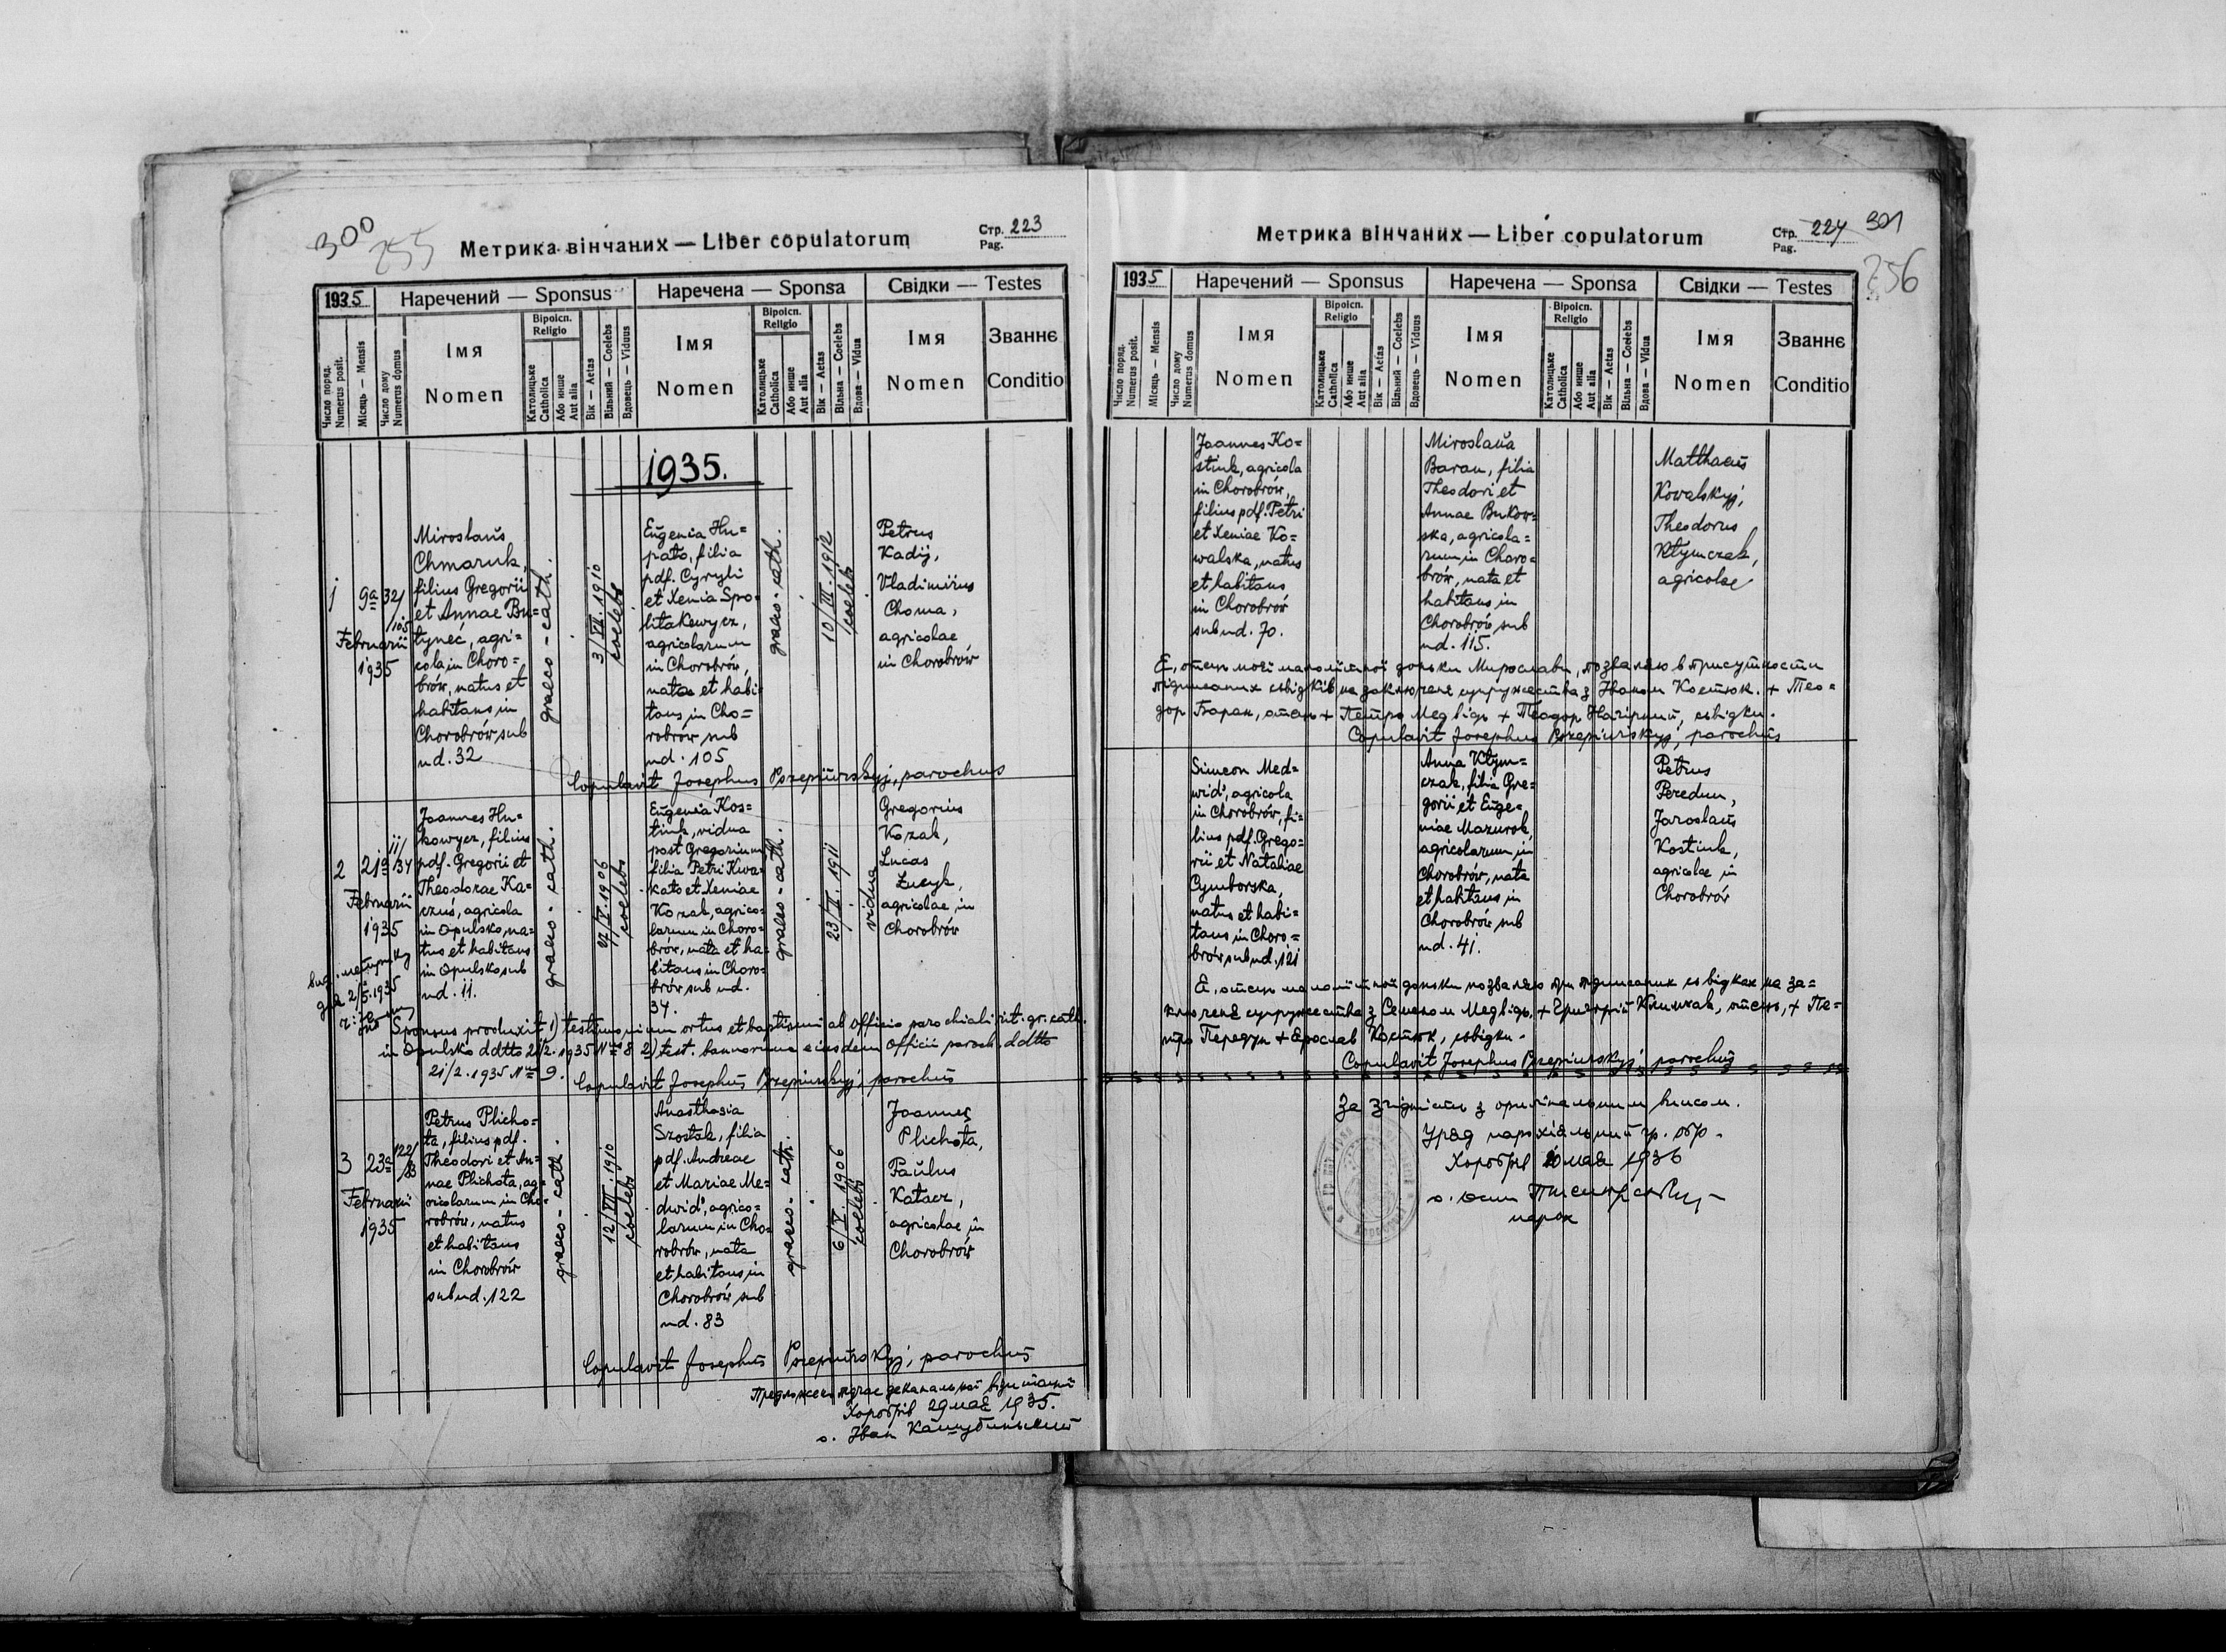 300
255
Метрика вінчаних — Liber copulatorum
Стр. 223
Pag.
1935
Наречений — Sponsus
Наречена — Sponsa
Свідки — Testes
Число поряд.
Numerus posit.
Місяць — Mensis
Число дому
Numerus domus
Імя
Nomen
Віроісп.
Religio
Католицьке
Catholica
Або инше
Aut alia
Вік — Aetas
Вільний — Coelebs
Вдовець — Viduus
Імя
Nomen
Віроісп.
Religio
Католицьке
Catholica
Або инше
Aut alia
Вік — Aetas
Вільна — Coelebs
Вдова — Vidua
Імя
Nomen
Званнє
Conditio
1935.
1
9a
32/
105
Februarii
1935
Miroslaus
Chmaruk,
filius Gregorii
et Annae Bu=
tyneć, agri=
cola in Choro=
brów, natus et
habitans in
Chorobrów sub
nd. 32
graeco-cath.
3/VII. 1910
coelebs
Eugenia Hu=
pało, filia
pdf. Cyryli
et Xenia Spo=
litakewycz,
agricolarum
in Chorobrów,
nata et habi=
tans in Cho=
robrów sub
nd. 105
graeco-cath.
10/III. 1912
coelebs
Petrus
Kadij,
Vladimirus
Choma,
agricolae
in Chorobrów
Copulavit Josephus Pszepiurskyj, parochus
2
21a
11/
134
Februarii
1935
Joannes Hu=
kowycz, filius
pdf. Gregorii et
Theodorae Ka=
czuś, agricola
in Opulsko, na=
tus et habitans
in Opulsko sub
nd. 11.
graeco-cath.
27/V. 1906
coelebs
Eugenia Kos=
tiuk, vidua
post Gregorium
filia Petri Kwa=
kato et Xeniae
Kozak, agrico=
larum in Choro=
brów, nata et ha=
bitans in Choro=
brów sub nd.
34.
graeco-cath.
23/II. 1911
vidua
Gregorius
Kozak,
Lucas
Łucyk,
agricolae in
Chorobrów
Вид. метрику
дня 2/5. 1935
Sponsus produxit 1) testimonium ortus et baptismi ab officio parochiali rit. gr. cath.
in Opulsko ddtto 21/2. 1935 Nro 8 2) test. bannorum eiusdem Officii paroch. ddtto
21/2. 1935 Nro 9.
Copulavit Josephus Pszepiurskyj, parochus
3
23a
122/
83
Februarii
1935
Petrus Plicho=
ta, filius pdf.
Theodori et An=
nae Plichota, ag=
ricolarum in Cho=
robrów, natus
et habitans
in Chorobrów
sub nd. 122
graeco-cath.
12/VII. 1910
coelebs
Anasthasia
Szostak, filia
pdf. Andreae
et Mariae Me=
dwid', agrico=
larum in Cho=
robrów, nata
et habitans in
Chorobrów sub
nd. 83
graeco-cath.
6/V. 1906
coelebs
Joannes
Plichota,
Paulus
Katacz,
agricolae in
Chorobrów
Copulavit Josephus Pszepiurskyj, parochus
Предложено підчас деканальної візитації
Хоробрів 29 мая 1935.
о. Іван Кашубинський
Метрика вінчаних — Liber copulatorum
Стр. 224
Pag.
301
256
1935
Наречений — Sponsus
Наречена — Sponsa
Свідки — Testes
Число поряд.
Numerus posit.
Місяць — Mensis
Число дому
Numerus domus
Імя
Nomen
Віроісп.
Religio
Католицьке
Catholica
Або инше
Aut alia
Вік — Aetas
Вільний — Coelebs
Вдовець — Viduus
Імя
Nomen
Віроісп.
Religio
Католицьке
Catholica
Або инше
Aut alia
Вік — Aetas
Вільна — Coelebs
Вдова — Vidua
Імя
Nomen
Званнє
Conditio
Joannes Ko=
stiuk, agricola
in Chorobrów,
filius pdf. Petri
et Xeniae Ko=
walska, natus
et habitans
in Chorobrów
sub nd. 70.
Miroslaua
Baran, filia
Theodori et
Annae Bukow=
ska, agricola=
rum in Choro=
brów, nata et
habitans in
Chorobrów sub
nd. 115.
Matthaeus
Kowalskyj,
Theodorus
Kłymczak,
agricolae
Я, отець моєї малолітної доньки Мирослави, позваляю в присутности
підписаних свідків на заключенє супружества з Іваном Костюк. + Тео=
дор Баран, отець + Петро Медвідь + Теодор Нагірний, свідки.
Copulavit Josephus Pszepiurskyj, parochus
Simeon Med=
wid', agricola
in Chorobrów, fi=
lius pdf. Grego=
rii et Nataliae
Cymborska,
natus et habi=
tans in Choro=
brów sub nd. 121
Anna Kłym=
czak, filia Gre=
gorii et Euge=
niae Mazurok,
agricolarum in
Chorobrów, nata
et habitans in
Chorobrów sub
nd. 41.
Petrus
Peredun,
Jaroslaus
Kostiuk,
agricolae in
Chorobrów
Я, отець малолітної доньки позваляю при підписаних свідках на за=
ключенє супружества з Семеном Медвідь. + Григорій Климчак, отець, + Пе=
тро Передун + Ярослав Костюк, свідки.
Copulavit Josephus Pszepiurskyj, parochus
За згідність з оригінальним вписом.
Уряд парохіяльний гр. обр.
Хоробрів 20 мая 1936
о. Осип Пшепюрський
парох